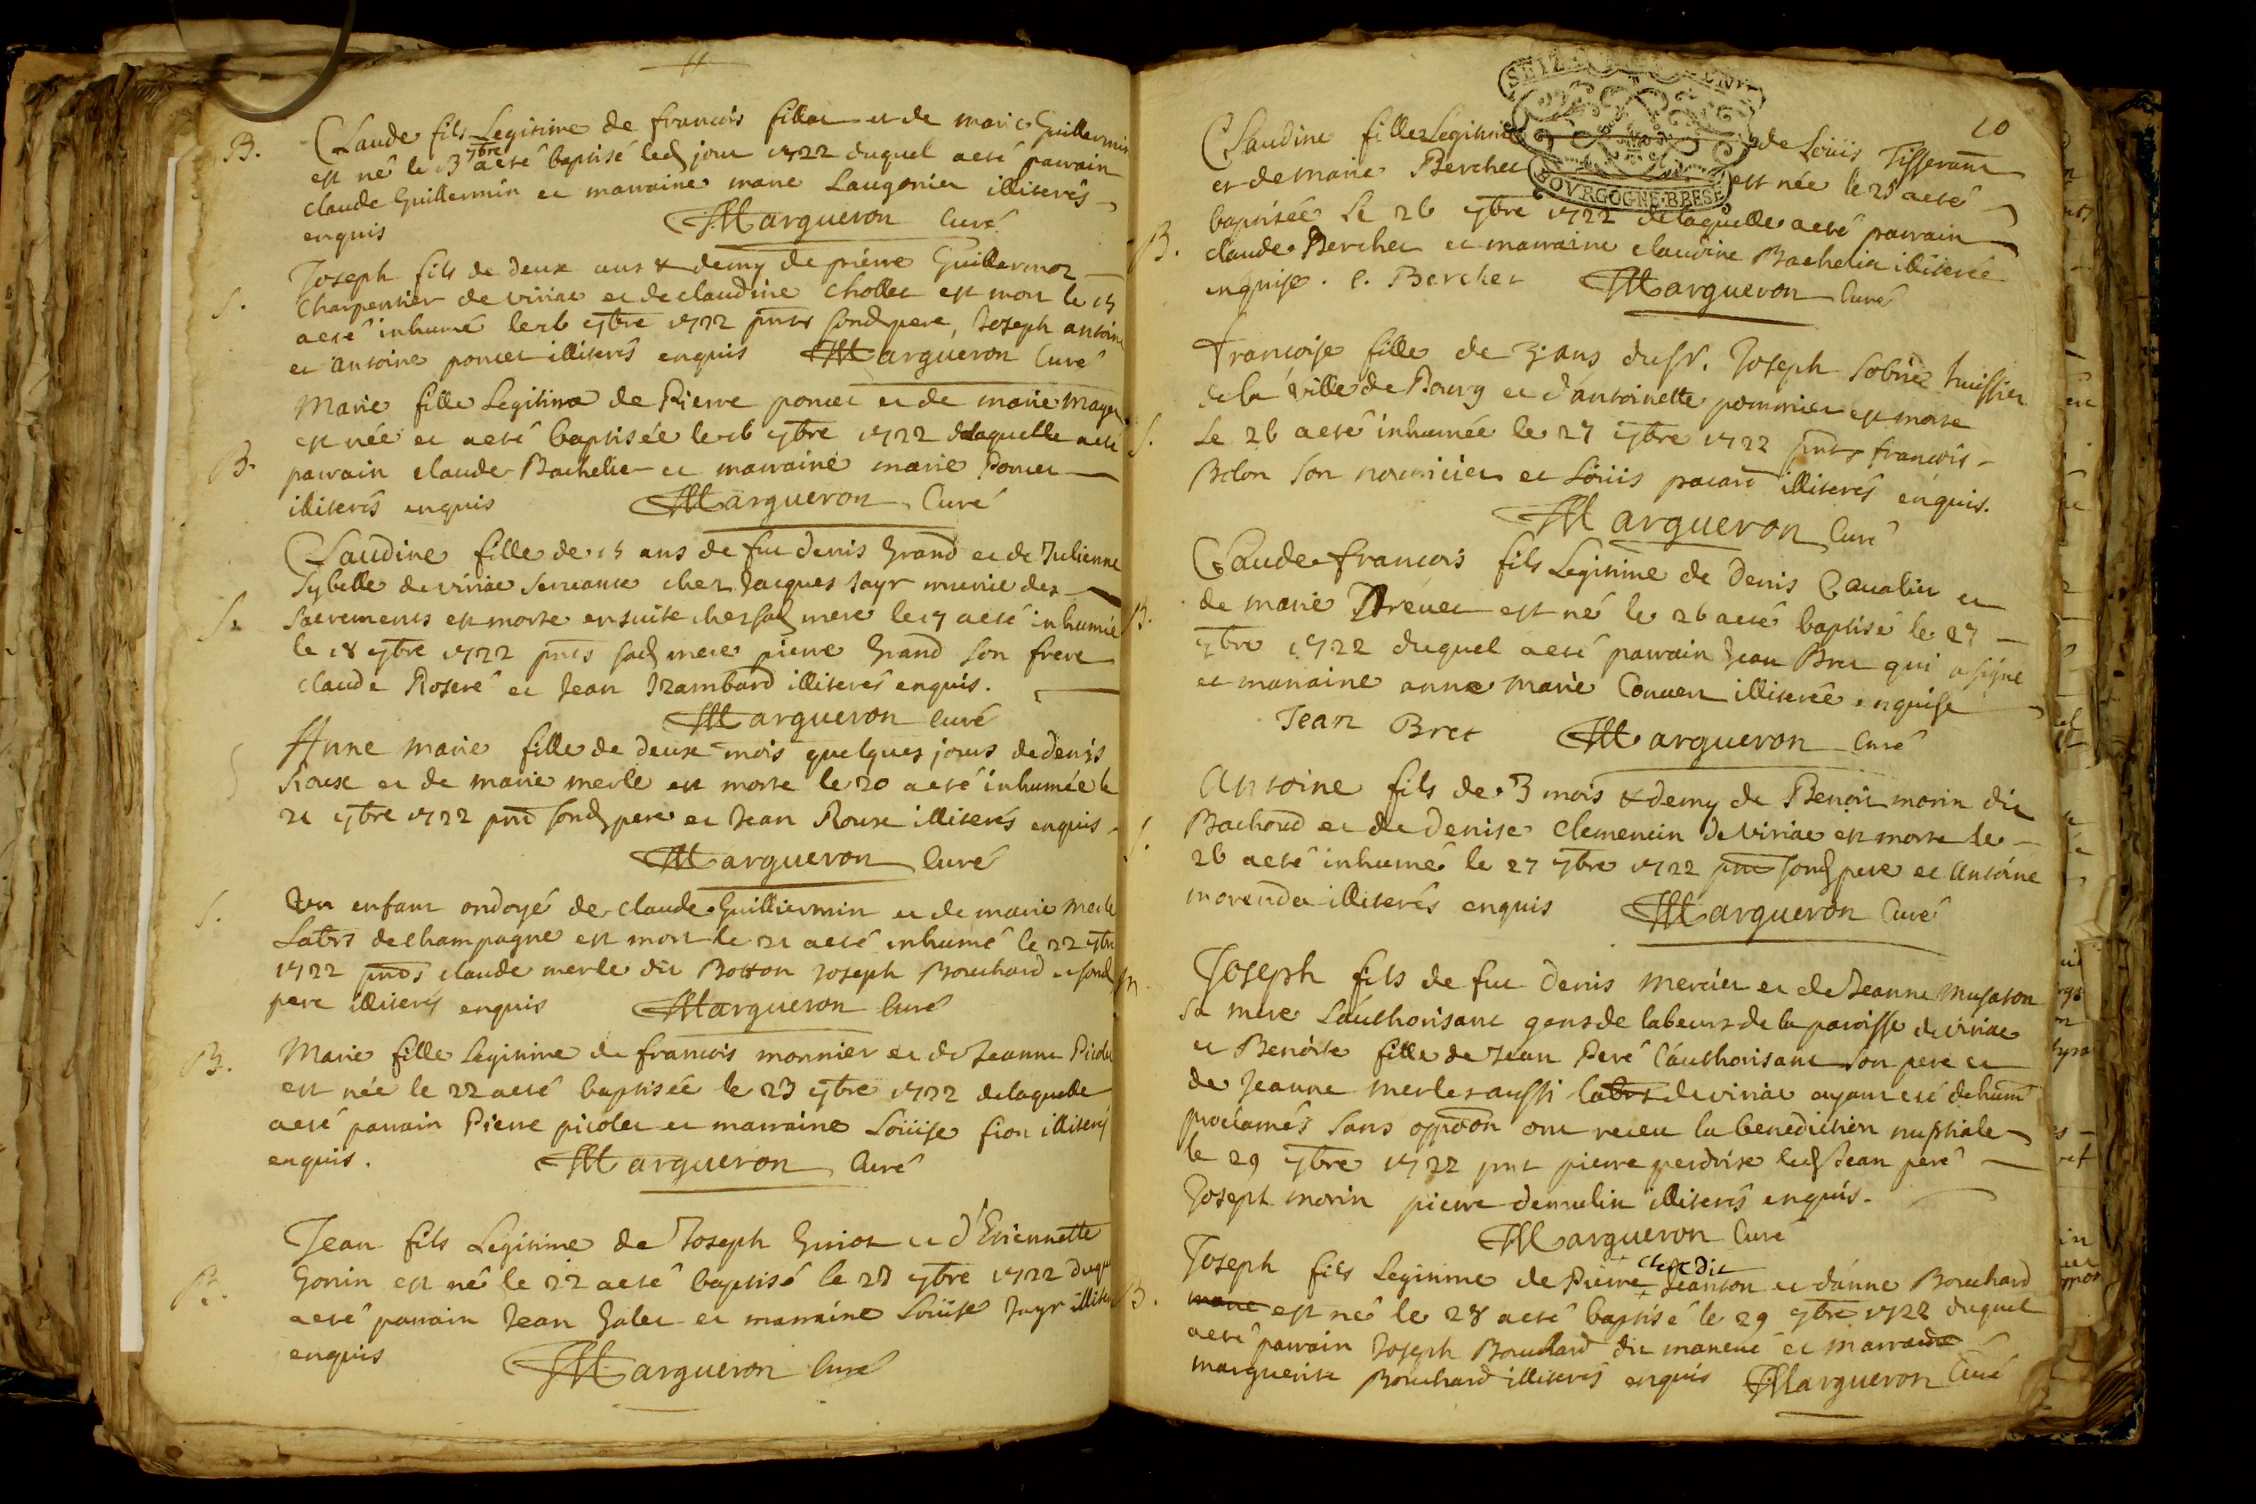 B. Claude fils Legitime de francois fillet et de marie Guillermin
est né le 13 7bre a eté baptisé led jour 1722 duquel a eté parrain
claude Guillermin et marraine marie Laugonier illiterés
enquis Margueron Curé
Joseph fils de deux ans & demy de pierre Guillermot
S. Charpentier de viriat et de claudine chollet est mort le 15
a eté inhumé le 16 7bre 1722 pnts sond pere, Joseph antoine
et antoine poncet illiterés enquis Margueron Curé
Marie fille Legitime de Pierre poncet et de marie Mayet
est née et a eté baptisée le 16 7bre 1722 de laquelle a eté
B. parrain claude Bachelier et marraine marie Poncet
illiterés enquis Margueron Curé
Claudine fille de 15 ans de feu denis Grand et de Julienne
Sybelle de viriat servante chez Jacques Jayr munie des
S. Sacrements est morte ensuite chez sad mere le 17 a eté inhumée
le 18 7bre 1722 pnts sad mere pierre Grand son frere
claude Roseré et Jean Irambard illiterés enquis.
Margueron Curé
Anne marie fille de deux mois quelques jours de denis
S. Roux et de marie merle est morte le 20 a eté inhumée le
21 7bre 1722 pnt sond pere et Jean Roux illiterés enquis
Margueron Curé
S. Un enfant ondoyé de claude Guilliermin et de marie merle
Labrs de champagne est mort le 21 a eté inhumé le 22 7bre
1722 pnts claude merle dit Botton Joseph Bouchard et sond
pere illiterés enquis Margueron Curé
B. Marie fille Legitime de francois monnier et de Jeanne Picolet
est née le 22 a eté baptisée le 23 7bre 1722 de laquelle
a eté parrain Pierre picolet et marraine Loüise fion illiterés
enquis. Margueron Curé
Jean fils Legitime de Joseph Guiot et d'Etiennette
B. Gonin est né le 22 a eté baptisé le 23 7bre 1722 duquel
a eté parrain Jean Jalet et marraine Loüise Jayr illiterés
enquis Margueron Curé
10
Claudine fille Legitime de Loüis Tisserant
SEIZE BOVRGOGNE·BRESSE
et de marie Berchet est née le 25 a eté
baptisée Le 26 7bre 1722 de laquelle a eté parrain
B. claude Berchet et marraine claudine Bachelier illiterée
enquise. C. Berchet Margueron Curé
Francoise fille de 3 ans du Sr. Joseph Sobrier huissier
de la ville de Bourg et d'antoinette pommier est morte
S. Le 26 a eté inhumée le 27 7bre 1722 pnts francois
Bolon son nourricier et Loüis pacard illiterés enquis.
Margueron Curé
Claude francois fils Legitime de denis Cavalier et
B. de marie Drevet est né le 26 a eté baptisé le 27
7bre 1722 duquel a eté parrain Jean Bret qui a signé
et marraine anne marie Convert illiterée enquise
Jean Bret Margueron Curé
Antoine fils de 3 mois & demy de Benoit morin dit
Bachoud et de denise Clemencin de viriat est morte le
S. 26 a eté inhumé le 27 7bre 1722 pnt sond pere et Antoine
morendet illiterés enquis Margueron Curé
M. Joseph fils de feu denis mercier et de Jeanne Musaton
sa mere L'authorisant gens de labeurs de la paroisse de viriat
et Benoite fille de Jean Peré l'authorisant son pere et
de Jeanne merle aussi labrs de viriat ayant eté dehumt
proclamés sans oppoon ont receu la benediction nuptiale
le 29 7bre 1722 pnt pierre perdrix led Jean peré
Joseph morin pierre demulin illiterés enquis.
Margueron Curé
Joseph fils Legitime de Pierre clert dit Jeanton et d'anne Bouchard
B. marie est né le 28 a eté baptisé le 29 7bre 1722 duquel
a eté parrain Joseph Bouchard dit manené et marraine
marguerite Bouchard illiterés enquis Margueron Curé